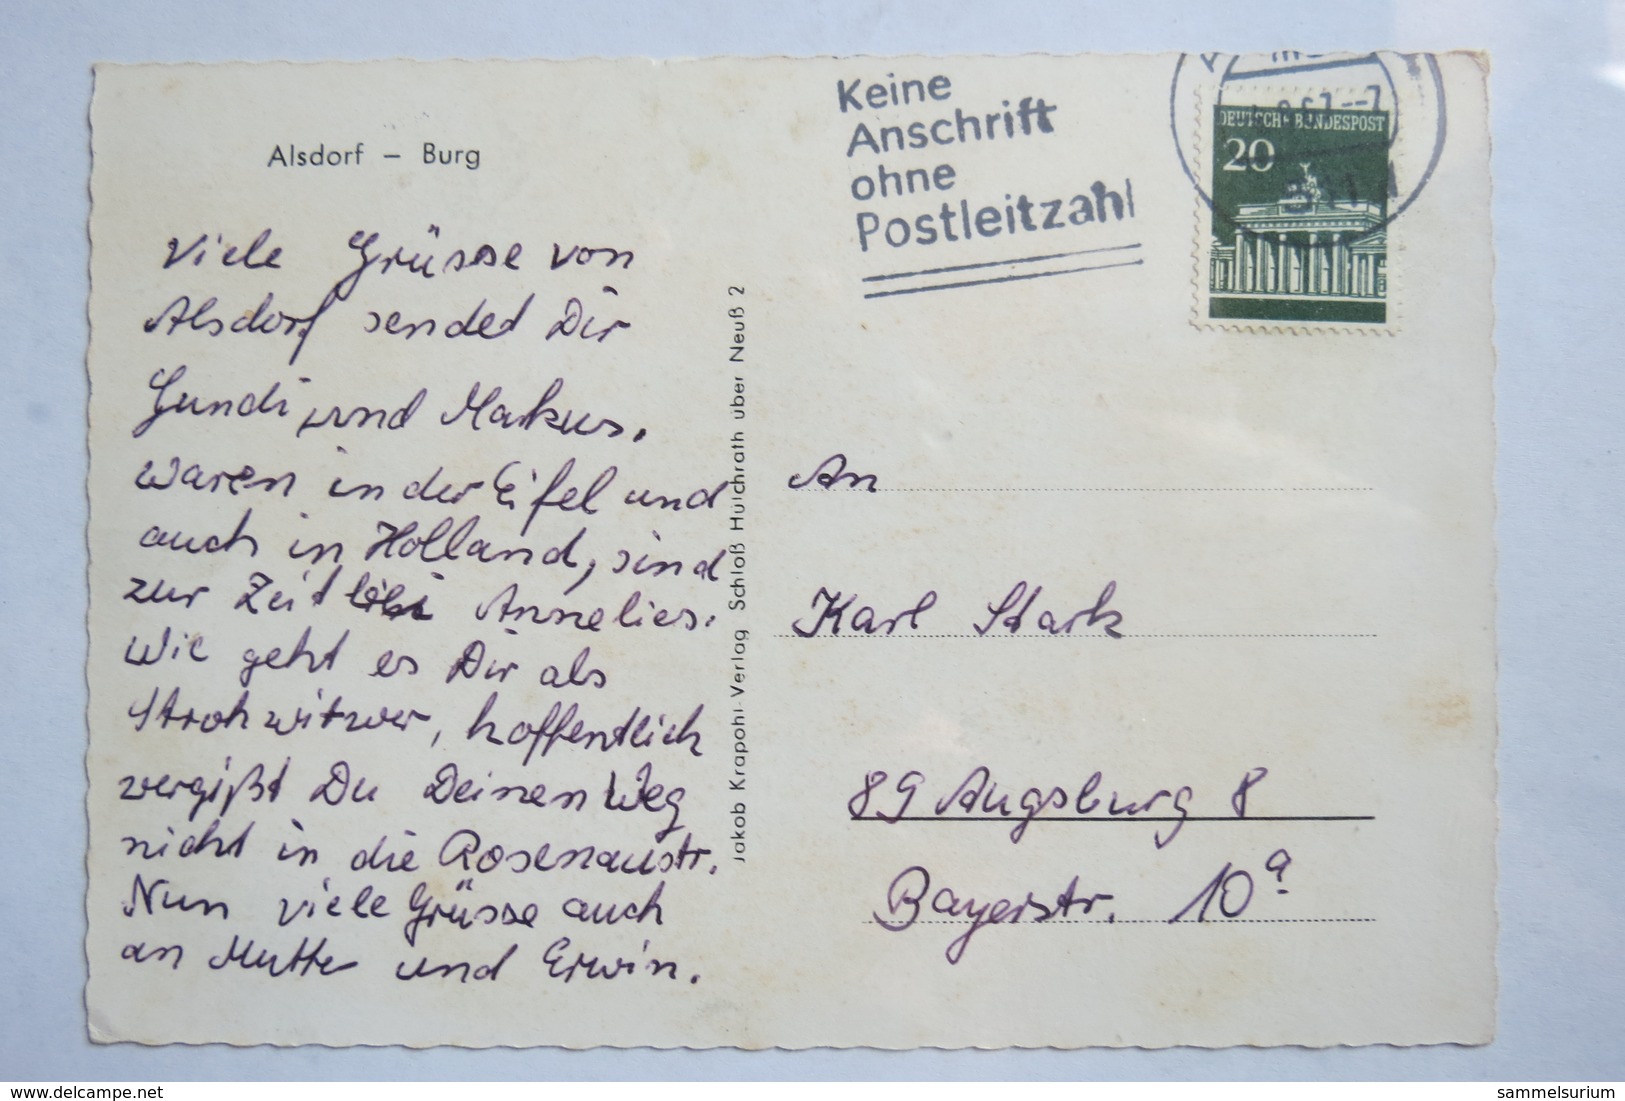 Alsdorf – Burg
Viele Grüsse von
Alsdorf sendet Dir
Gundi und Markus.
Waren in der Eifel und
auch in Holland, sind
zur Zeit bei Annelies.
Wie geht es Dir als
Strohwitwer, hoffentlich
vergißt Du Deinen Weg
nicht in die Rosenaustr.
Nun viele Grüsse auch
an Mutter und Erwin.
Jakob Krapohl-Verlag Schloß Hülchrath über Neuß 2
Keine
Anschrift
ohne
Postleitzahl
DEUTSCHE BUNDESPOST
20
An
Karl Stark
89 Augsburg 8
Bayerstr. 10a
delcampe.net
sammelsurium